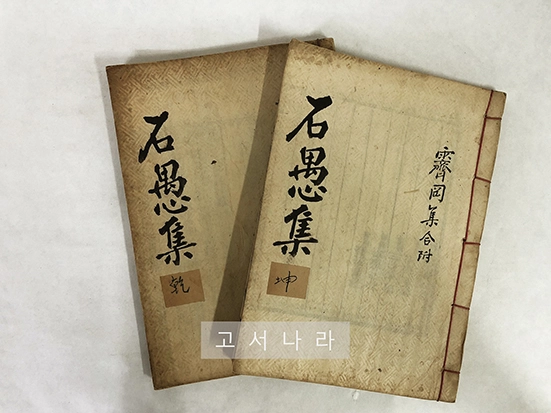 石愚集
乾
石愚集
坤
霽岡集合附
고서나라